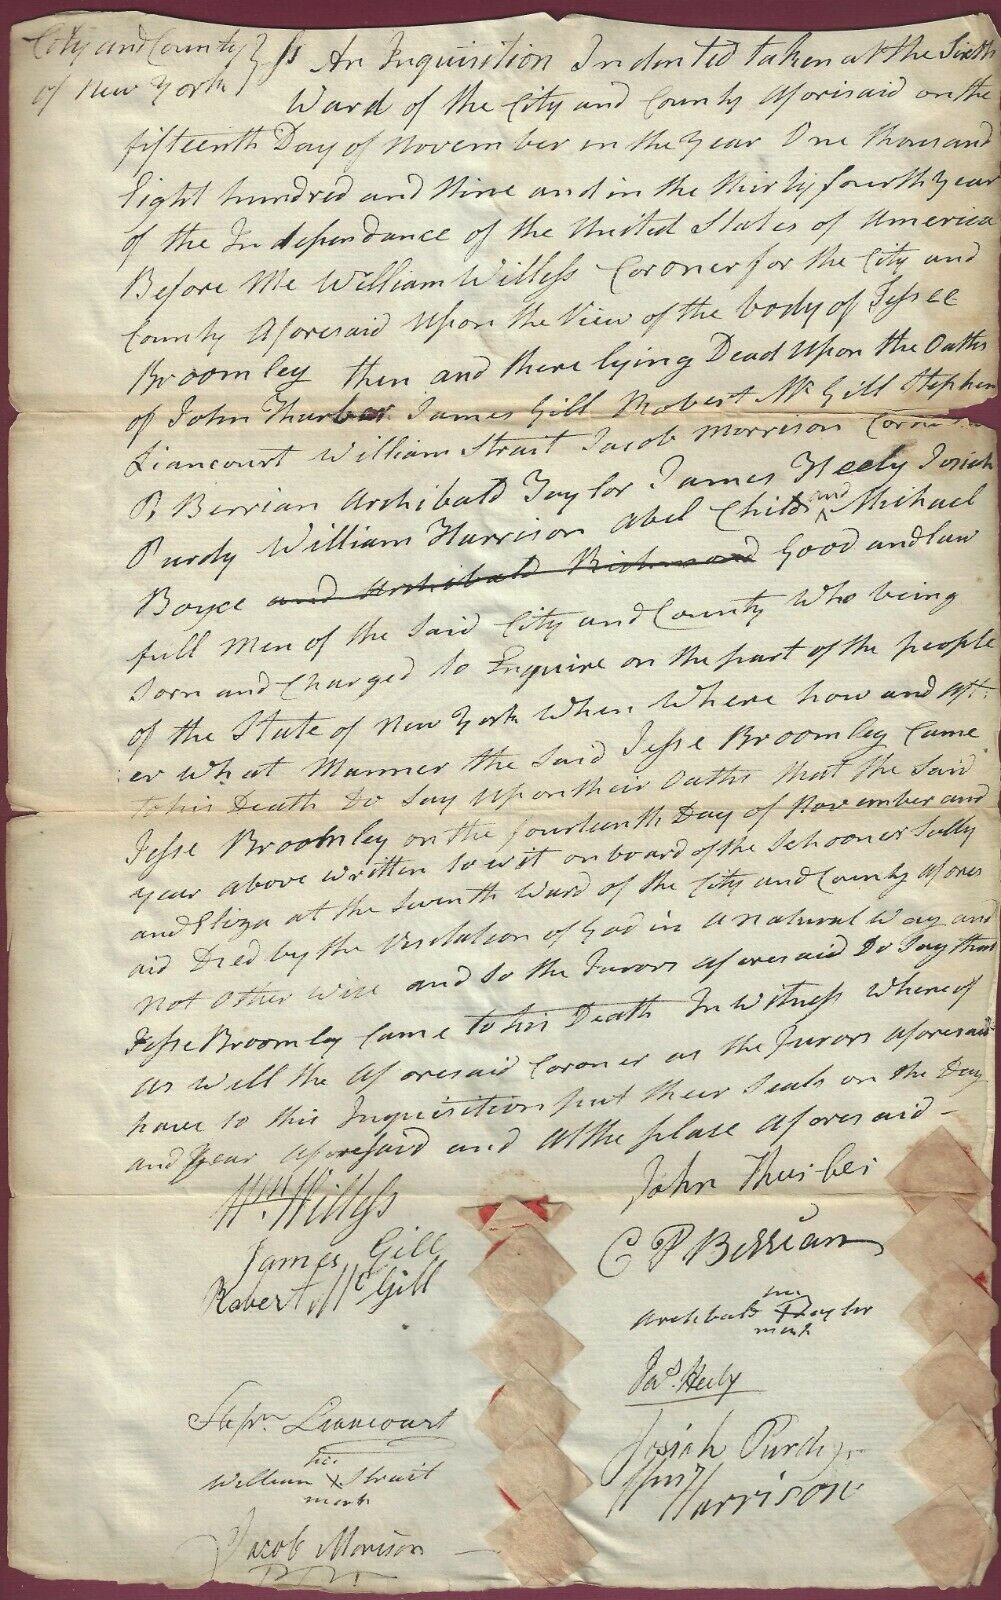 City and County } ss An Inquisition Indented taken at the Sixth
of New York }
Ward of the City and County aforisaid on the
fifteenth Day of November in the year One thousand
Eight hundred and Nine and in the thirty fourth year
of the Independance of the United States of America
Before Me William Willess Coroner for the City and
County Aforesaid Upon the View of the body of Jessee
Broomley then and there lying Dead Upon the Oaths
of John Thurber James Gill Robert McGill Stephen
Liancourt William Strait Jacob Morrison
P. Berrian Archibald Taylor James Heely Josiah
Purdy William Harrison Abel Child and Michael
Boyce and Archibald Richmond Good and law
full Men of the Said City and County Who being
Sorn and Charged to Enquire on the part of the people
of the State of New York When Where how and aft
er What Manner the Said Jesse Broomley Came
to his Death Do Say Upon their Oaths that the Said
Jesse Broomley on the fourteenth Day of November and
year above written to wit on board of the Schooner Sally
and Eliza at the Seventh Ward of the City and County afores
aid Died by the Visitation of God in a natural Way and
Not Other Wise and so the Jurors aforesaid Do Say that
Jesse Broomley Came to his Death In Witness Whereof
as Well the Aforesaid Coroner as the Jurors aforesaid
have to this Inquisition put their Seals on the Day
and year aforesaid and At the place Aforesaid —
Wm. Willess
John Thurber
James Gill
C P Berrian
Robert McGill
his
Archbald Taylor
mark
Jas. Heely
Stepn Liancourt
Josiah Purdy
his
William X Strait
mark
Harrison
Jacob Morison